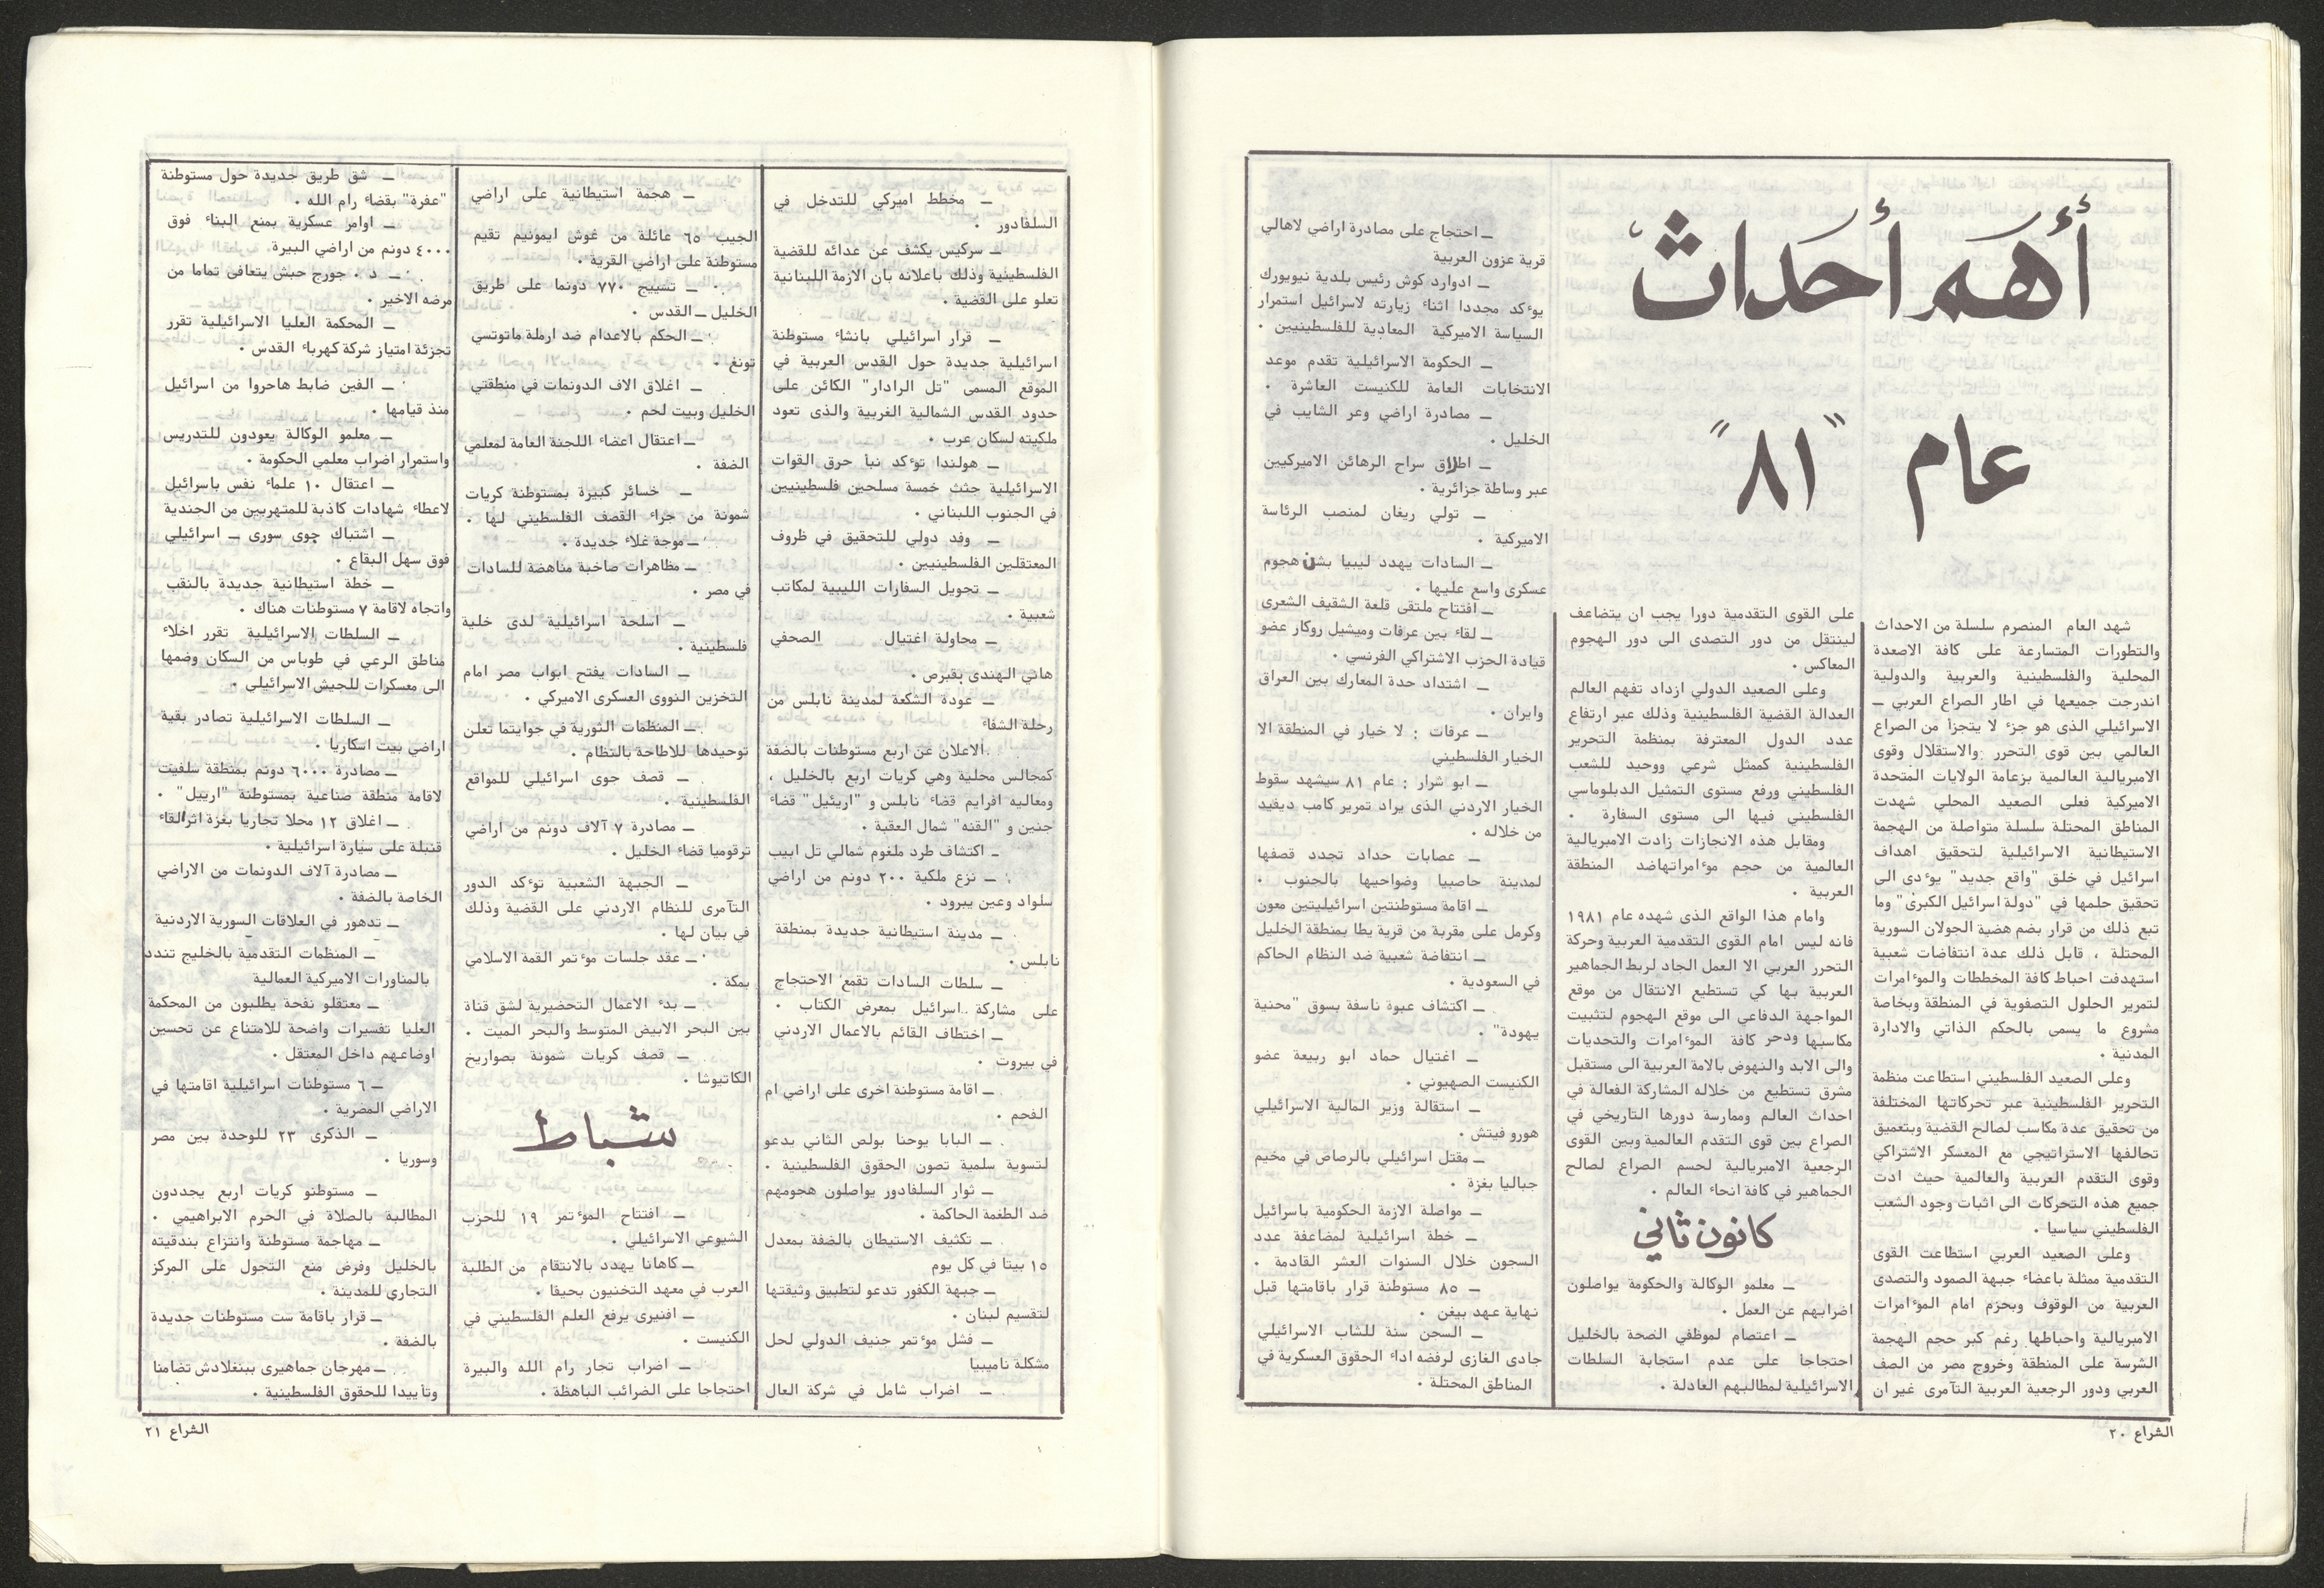 أهم أحداث
عام "٨١"
شهد العام المنصرم سلسلة من الاحداث
والتطورات المتسارعة على كافة الاصعدة
المحلية والفلسطينية والعربية والدولية
اندرجت جميعها في اطار الصراع العربي ـ
الاسرائيلي الذى هو جزء لا يتجزأ من الصراع
العالمي بين قوى التحرر والاستقلال وقوى
الامبريالية العالمية بزعامة الولايات المتحدة
الاميركية فعلى الصعيد المحلي شهدت
المناطق المحتلة سلسلة متواصلة من الهجمة
الاستيطانية الاسرائيلية لتحقيق اهداف
اسرائيل في خلق "واقع جديد" يوءدى الى
تحقيق حلمها في "دولة اسرائيل الكبرى" وما
تبع ذلك من قرار بضم هضبة الجولان السورية
المحتلة ، قابل ذلك عدة انتفاضات شعبية
استهدفت احباط كافة المخططات والموءامرات
لتمرير الحلول التصفوية في المنطقة وبخاصة
مشروع ما يسمى بالحكم الذاتي والادارة
المدنية .
وعلى الصعيد الفلسطيني استطاعت منظمة
التحرير الفلسطينية عبر تحركاتها المختلفة
من تحقيق عدة مكاسب لصالح القضية وبتعميق
تحالفها الاستراتيجي مع المعسكر الاشتراكي
وقوى التقدم العربية والعالمية حيث ادت
جميع هذه التحركات الى اثبات وجود الشعب
الفلسطيني سياسيا .
وعلى الصعيد العربي استطاعت القوى
التقدمية ممثلة باعضاء جبهة الصمود والتصدى
العربية من الوقوف وبحزم امام الموءامرات
الامبريالية واحباطها رغم كبر حجم الهجمة
الشرسة على المنطقة وخروج مصر من الصف
العربي ودور الرجعية العربية التآمرى غير ان
على القوى التقدمية دورا يجب ان يتضاعف
لينتقل من دور التصدى الى دور الهجوم
المعاكس .
وعلى الصعيد الدولي ازداد تفهم العالم
العدالة القضية الفلسطينية وذلك عبر ارتفاع
عدد الدول المعترفة بمنظمة التحرير
الفلسطينية كممثل شرعي ووحيد للشعب
الفلسطيني ورفع مستوى التمثيل الدبلوماسي
الفلسطيني فيها الى مستوى السفارة .
ومقابل هذه الانجازات زادت الامبريالية
العالمية من حجم موءامراتهاضد المنطقة
العربية .
وامام هذا الواقع الذى شهده عام ١٩٨١
فانه ليس امام القوى التقدمية العربية وحركة
التحرر العربي الا العمل الجاد لربط الجماهير
العربية بها كي تستطيع الانتقال من موقع
المواجهة الدفاعي الى موقع الهجوم لتثبيت
مكاسبها ودحر كافة الموءامرات والتحديات
والى الابد والنهوض بالامة العربية الى مستقبل
مشرق تستطيع من خلاله المشاركة الفعالة في
احداث العالم وممارسة دورها التاريخي في
الصراع بين قوى التقدم العالمية وبين القوى
الرجعية الامبريالية لحسم الصراع لصالح
الجماهير في كافة انحاء العالم .
كانون ثاني
ـ معلمو الوكالة والحكومة يواصلون
اضرابهم عن العمل .
ـ اعتصام لموظفي الصحة بالخليل
احتجاجا على عدم استجابة السلطات
الاسرائيلية لمطالبهم العادلة .
ـ احتجاج على مصادرة اراضي لاهالي
قرية عزون العربية
ـ ادوارد كوش رئيس بلدية نيويورك
يوءكد مجددا اثناء زيارته لاسرائيل استمرار
السياسة الاميركية المعادية للفلسطينيين .
ـ الحكومة الاسرائيلية تقدم موعد
الانتخابات العامة للكنيست العاشرة .
ـ مصادرة اراضي وعر الشايب في
الخليل .
ـ اطلاق سراح الرهائن الاميركيين
عبر وساطة جزائرية .
ـ تولي ريغان لمنصب الرئاسة
الاميركية .
ـ السادات يهدد ليبيا بشن هجوم
عسكرى واسع عليها .
ـ افتتاح ملتقى قلعة الشقيف الشعرى
ـ لقاء بين عرفات وميشيل روكار عضو
قيادة الحزب الاشتراكي الفرنسي .
ـ اشتداد حدة المعارك بين العراق
وايران .
ـ عرفات : لا خيار في المنطقة الا
الخيار الفلسطيني
ـ ابو شرار : عام ٨١ سيشهد سقوط
الخيار الاردني الذى يراد تمرير كامب ديفيد
من خلاله .
ـ عصابات حداد تجدد قصفها
لمدينة حاصبيا وضواحيها بالجنوب .
ـ اقامة مستوطنتين اسرائيليتين معون
وكرمل على مقربة من قرية يطا بمنطقة الخليل
ـ انتفاضة شعبية ضد النظام الحاكم
في السعودية .
ـ اكتشاف عبوة ناسفة بسوق "محنية
يهودة" .
ـ اغتيال حماد ابو ربيعة عضو
الكنيست الصهيوني .
ـ استقالة وزير المالية الاسرائيلي
هورو فيتش .
ـ مقتل اسرائيلي بالرصاص في مخيم
جباليا بغزة .
ـ مواصلة الازمة الحكومية باسرائيل
ـ خطة اسرائيلية لمضاعفة عدد
السجون خلال السنوات العشر القادمة .
ـ ٨٥ مستوطنة قرار باقامتها قبل
نهاية عهد بيغن .
ـ السجن سنة للشاب الاسرائيلي
جادى الغازى لرفضه اداء الحقوق العسكرية في
المناطق المحتلة .
الشراع ٢٠
ـ مخطط اميركي للتدخل في
السلفادور .
ـ سركيس يكشف عن عدائه للقضية
الفلسطينية وذلك باعلانه بان الازمة اللبنانية
تعلو على القضية .
ـ قرار اسرائيلي بانشاء مستوطنة
اسرائيلية جديدة حول القدس العربية في
الموقع المسمى "تل الرادار" الكائن على
حدود القدس الشمالية الغربية والذى تعود
ملكيته لسكان عرب .
ـ هولندا توءكد نبأ حرق القوات
الاسرائيلية جثث خمسة مسلحين فلسطينيين
في الجنوب اللبناني .
ـ وفد دولي للتحقيق في ظروف
المعتقلين الفلسطينيين .
ـ تحويل السفارات الليبية لمكاتب
شعبية .
ـ محاولة اغتيال الصحفي
هاني الهندى بقبرص .
ـ عودة الشكعة لمدينة نابلس من
رحلة الشفاء
.الاعلان عن اربع مستوطنات بالضفة
كمجالس محلية وهي كريات اربع بالخليل ،
ومعاليه افرايم قضاء نابلس و "اريئيل" قضاء
جنين و "القنه" شمال العقبة .
ـ اكتشاف طرد ملغوم شمالي تل ابيب
ـ نزع ملكية ٢٠٠ دونم من اراضي
سلواد وعين يبرود .
ـ مدينة استيطانية جديدة بمنطقة
نابلس .
ـ سلطات السادات تقمع الاحتجاج
على مشاركة اسرائيل بمعرض الكتاب .
ـ اختطاف القائم بالاعمال الاردني
في بيروت .
ـ اقامة مستوطنة اخرى على اراضي ام
الفحم .
ـ البابا يوحنا بولص الثاني يدعو
لتسوية سلمية تصون الحقوق الفلسطينية .
ـ ثوار السلفادور يواصلون هجومهم
ضد الطغمة الحاكمة .
ـ تكثيف الاستيطان بالضفة بمعدل
١٥ بيتا في كل يوم
ـ جبهة الكفور تدعو لتطبيق وثيقتها
لتقسيم لبنان .
ـ فشل موءتمر جنيف الدولي لحل
مشكلة ناميبيا
ـ اضراب شامل في شركة العال
ـ هجمة استيطانية على اراضي
الجيب ٦٥ عائلة من غوش ايمونيم تقيم
مستوطنة على اراضي القرية .
ـ تسييج ٧٧٠ دونما على طريق
الخليل ـ القدس .
ـ الحكم بالاعدام ضد ارملة ماتوتسي
تونغ .
ـ اغلاق الاف الدونمات في منطقتي
الخليل وبيت لحم .
ـ اعتقال اعضاء اللجنة العامة لمعلمي
الضفة .
ـ خسائر كبيرة بمستوطنة كريات
شمونة من جراء القصف الفلسطيني لها .
ـ موجة غلاء جديدة .
ـ مظاهرات صاخبة مناهضة للسادات
في مصر .
ـ اسلحة اسرائيلية لدى خلية
فلسطينية .
ـ السادات يفتح ابواب مصر امام
التخزين النووى العسكرى الاميركي .
ـ المنظمات الثورية في جواتيما تعلن
توحيدها للاطاحة بالنظام .
ـ قصف جوى اسرائيلي للمواقع
الفلسطينية .
ـ مصادرة ٧ آلاف دونم من اراضي
ترقوميا قضاء الخليل .
ـ الجبهة الشعبية توءكد الدور
التآمرى للنظام الاردني على القضية وذلك
في بيان لها .
ـ عقد جلسات موءتمر القمة الاسلامي
بمكة .
ـ بدء الاعمال التحضيرية لشق قناة
بين البحر الابيض المتوسط والبحر الميت .
ـ قصف كريات شمونة بصواريخ
الكاتيوشا .
شباط
ـ افتتاح الموءتمر ١٩ للحزب
الشيوعي الاسرائيلي .
ـ كاهانا يهدد بالانتقام من الطلبة
العرب في معهد التخنيون بحيفا .
ـ افنيرى يرفع العلم الفلسطيني في
الكنيست .
ـ اضراب تجار رام الله والبيرة
احتجاجا على الضرائب الباهظة .
ـ شق طريق جديدة حول مستوطنة
"عفرة" بقضاء رام الله .
ـ اوامر عسكرية بمنع البناء فوق
٤٠٠٠ دونم من اراضي البيرة.
ـ د . جورج حبش يتعافى تماما من
مرضه الاخير .
ـ المحكمة العليا الاسرائيلية تقرر
تجزئة امتياز شركة كهرباء القدس .
ـ الفين ضابط هاجروا من اسرائيل
منذ قيامها .
ـ معلمو الوكالة يعودون للتدريس
واستمرار اضراب معلمي الحكومة .
ـ اعتقال ١٠ علماء نفس باسرائيل
لاعطاء شهادات كاذبة للمتهربين من الجندية
ـ اشتباك جوى سورى ـ اسرائيلي
فوق سهل البقاع .
ـ خطة استيطانية جديدة بالنقب
واتجاه لاقامة ٧ مستوطنات هناك .
ـ السلطات الاسرائيلية تقرر اخلاء
مناطق الرعي في طوباس من السكان وضمها
الى معسكرات للجيش الاسرائيلي .
ـ السلطات الاسرائيلية تصادر بقية
اراضي بيت اسكاريا .
ـ مصادرة ٦٠٠٠ دونم بمنطقة سلفيت
لاقامة منطقة صناعية بمستوطنة "ارييل" .
ـ اغلاق ١٢ محلا تجاريا بغزة اثرالقاء
قنبلة على سيارة اسرائيلية .
ـ مصادرة آلاف الدونمات من الاراضي
الخاصة بالضفة .
ـ تدهور في العلاقات السورية الاردنية
ـ المنظمات التقدمية بالخليج تندد
بالمناورات الاميركية العمالية
ـ معتقلو نفحة يطلبون من المحكمة
العليا تفسيرات واضحة للامتناع عن تحسين
اوضاعهم داخل المعتقل .
ـ ٦ مستوطنات اسرائيلية اقامتها في
الاراضي المصرية .
ـ الذكرى ٢٣ للوحدة بين مصر
وسوريا .
ـ مستوطنو كريات اربع يجددون
المطالبة بالصلاة في الحرم الابراهيمي .
ـ مهاجمة مستوطنة وانتزاع بندقيته
بالخليل وفرض منع التجول على المركز
التجارى للمدينة .
ـ قرار باقامة ست مستوطنات جديدة
بالضفة .
ـ مهرجان جماهيرى ببنغلادش تضامنا
وتأييدا للحقوق الفلسطينية .
الشراع ٢١